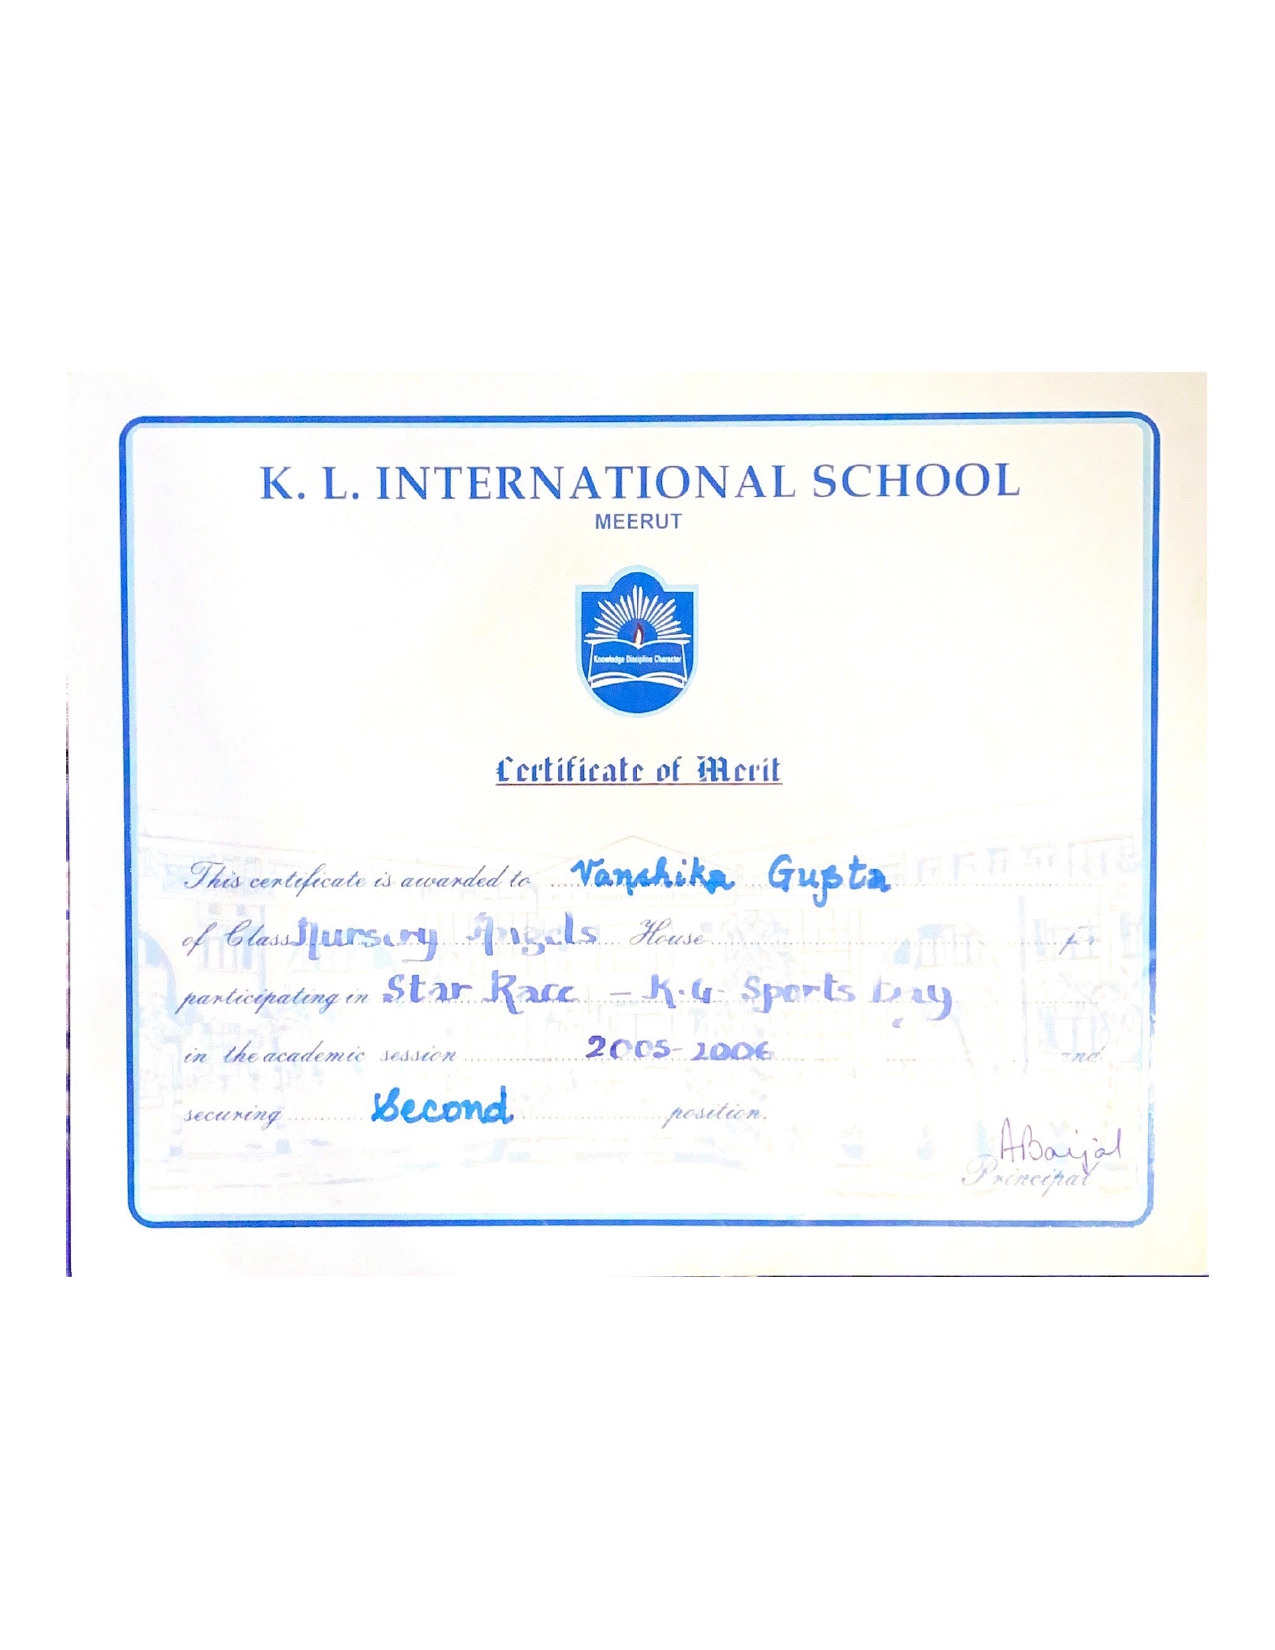 K. L. INTERNATIONAL SCHOOL
MEERUT
Knowledge Discipline Character
Certificate of Merit
This certificate is awarded to Vanshika Gupta
of Class Nursery Angels House for
participating in Star Race - K.G. Sports Day
in the academic session 2005-2006 and
securing Second position.
ABaijal
Principal